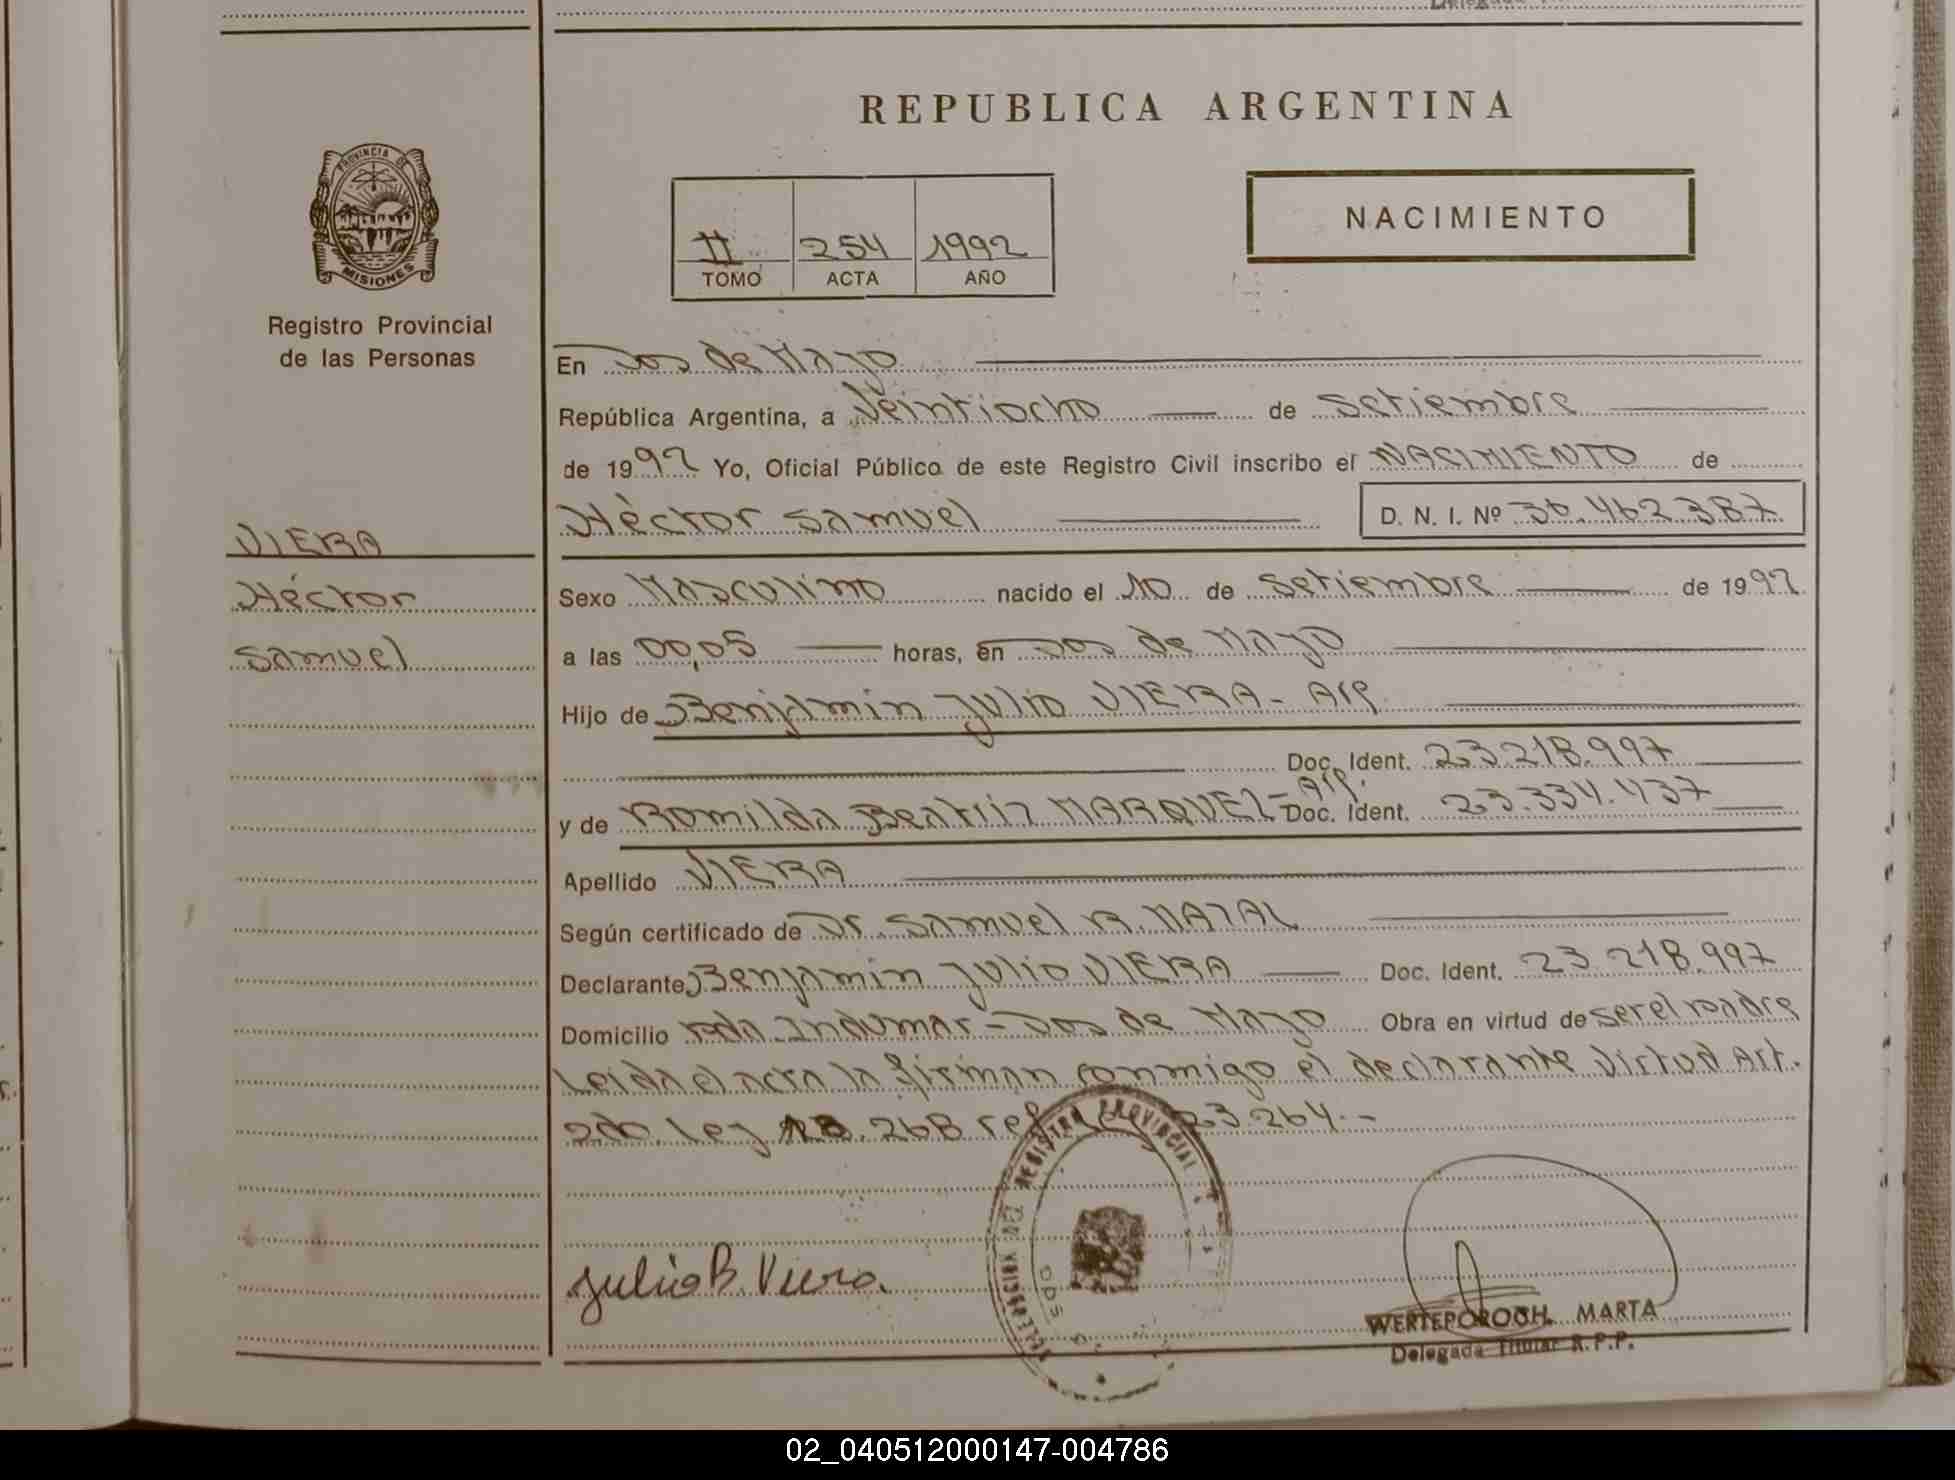 REPUBLICA ARGENTINA
PROVINCIA DE
MISIONES
Registro Provincial
de las Personas
II 254 1992
TOMO ACTA AÑO
NACIMIENTO
En Dos de Mayo
República Argentina, a Veintiocho de setiembre
de 1992 Yo, Oficial Público de este Registro Civil inscribo el NACIMIENTO de
Héctor Samuel D. N. I. Nº 36.462.387
VIERA
Héctor
Samuel
Sexo Masculino nacido el 10 de setiembre de 1992
a las 00,05 horas, en Dos de Mayo
Hijo de Benjamin Julio VIERA - Arg.
Doc. Ident. 23.218.997
y de Romilda Beatriz MARQUEZ - Arg. Doc. Ident. 23.334.437
Apellido VIERA
Según certificado de Dr. Samuel R. NATAL
Declarante Benjamin Julio VIERA Doc. Ident. 23.218.997
Domicilio Indumar - Dos de Mayo Obra en virtud de ser el padre
Leida el acta la firman conmigo el declarante Virtud Art.
2do. Ley 18.268 23.264.-
REGISTRO PROVINCIAL
Julio B. Viera.
WERTEPOROCH, MARTA
Delegada Titular R.P.P.
02_040512000147-004786